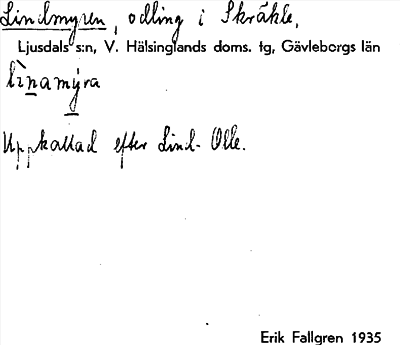 Lindmyren, odling i Skräkle,
Ljusdals s:n, V. Hälsinglands doms. tg, Gävleborgs län
lìnamýra
Uppkallad efter Lind-Olle.
Erik Fallgren 1935